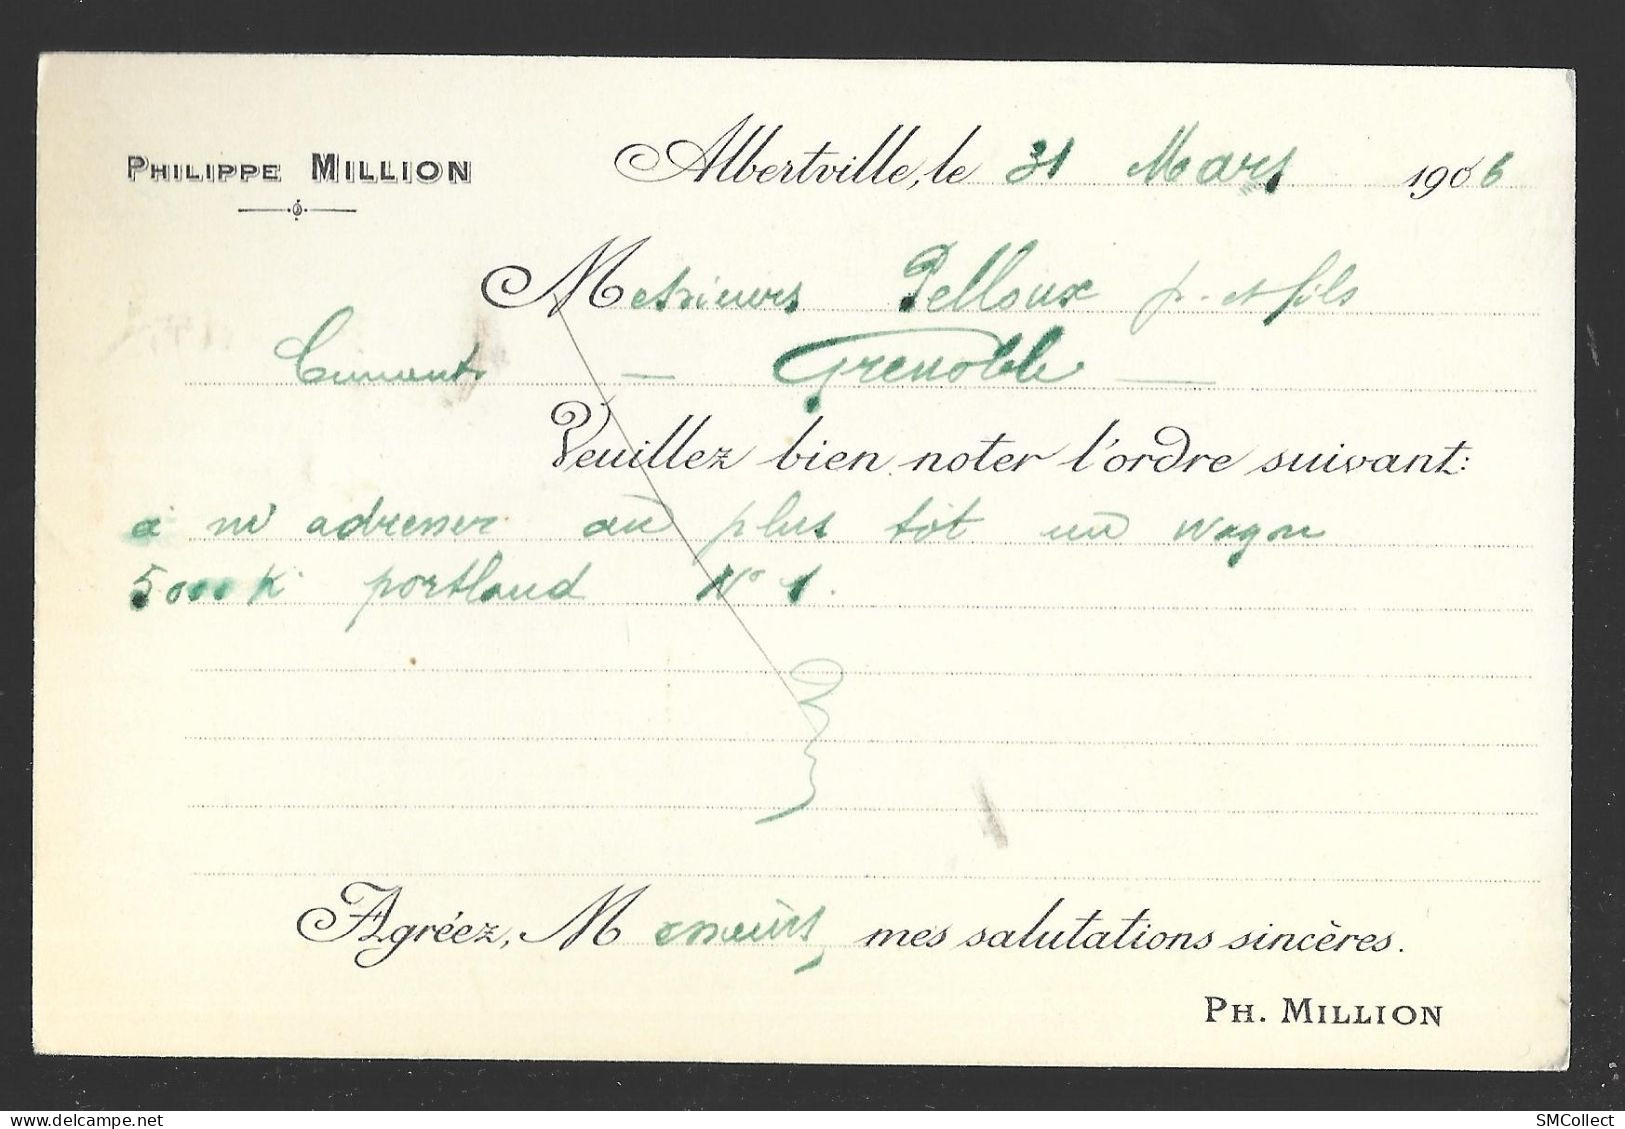 PHILIPPE MILLION
Albertville, le 31 Mars 1906
Messieurs Pelloux p. et fils
Ciments — Grenoble —
Veuillez bien noter l'ordre suivant:
à m'adresser au plus tôt un wagon
5000 K. portland N° 1.
Agréez, Messieurs, mes salutations sincères.
PH. MILLION
SMCollect